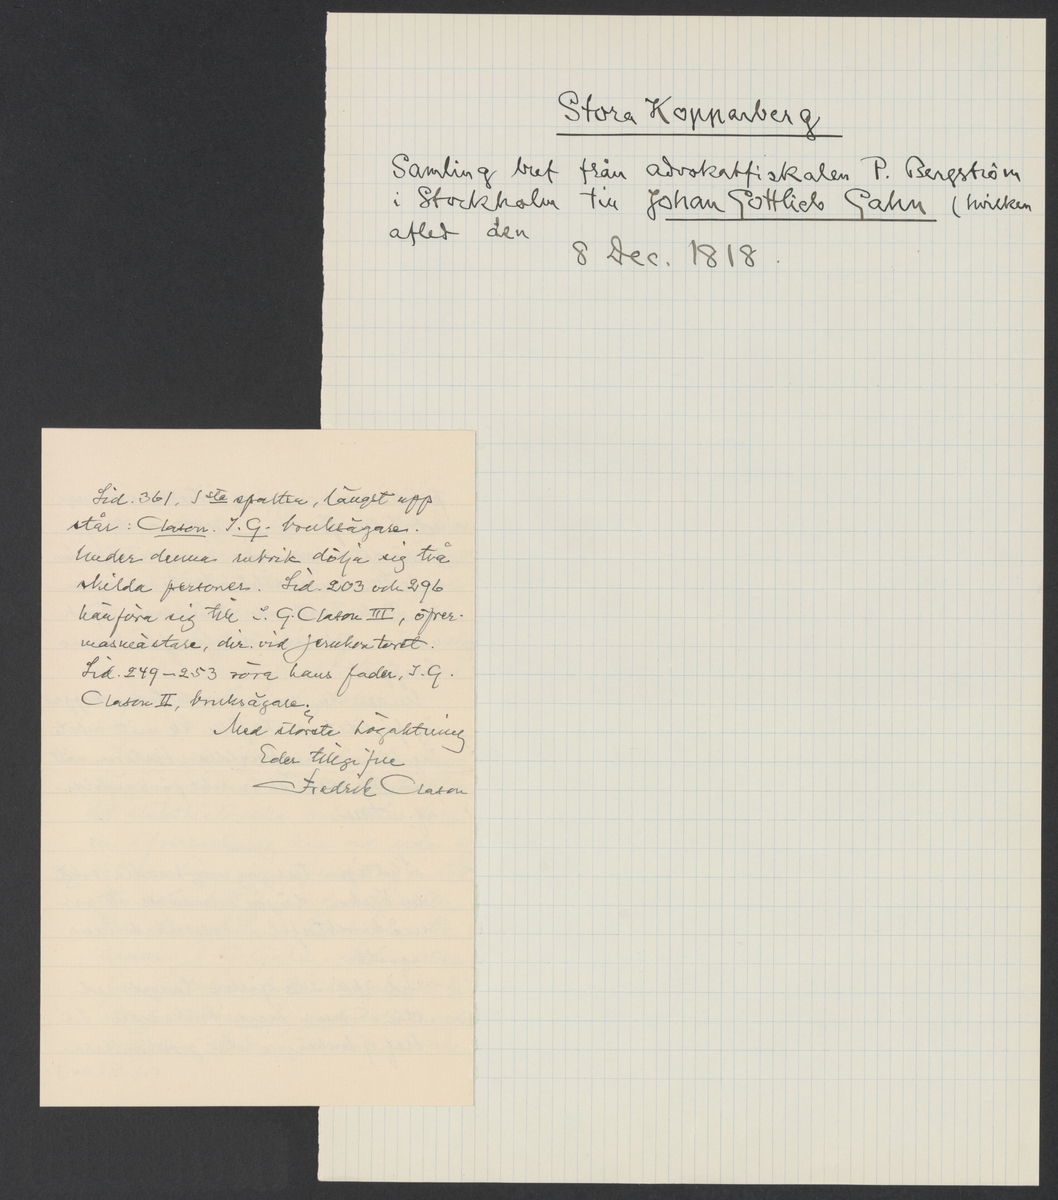 Stora Kopparberg
Samling bref från advokatfiskalen P. Bergström
i Stockholm till Johan Gottlieb Gahn (hvilken
afled den
8 Dec. 1818.
Sid. 361, 1ste spalten, längst upp
står: Clason. I. G. bruksägare.
Under denna rubrik dölja sig två
skilda personer. Sid. 203 och 296
hänföra sig till I. G. Clason III, öfver-
masmästare, dir. vid jernkontoret.
Sid. 249–253 röra hans fader, I. G.
Clason II, bruksägare.
Med största högaktning
Eder tillgifne
Fredrik Clason